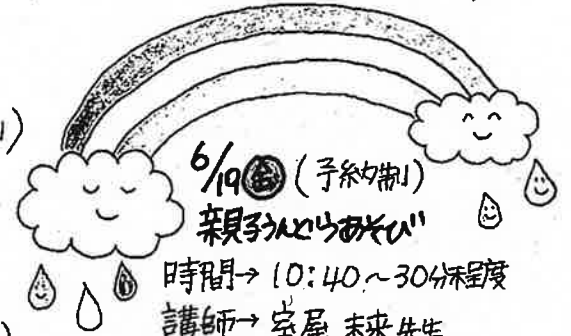 6/19㊎(予約制)
親子うんどうあそび
時間→10:40～30分程度
講師→室屋 未来 先生